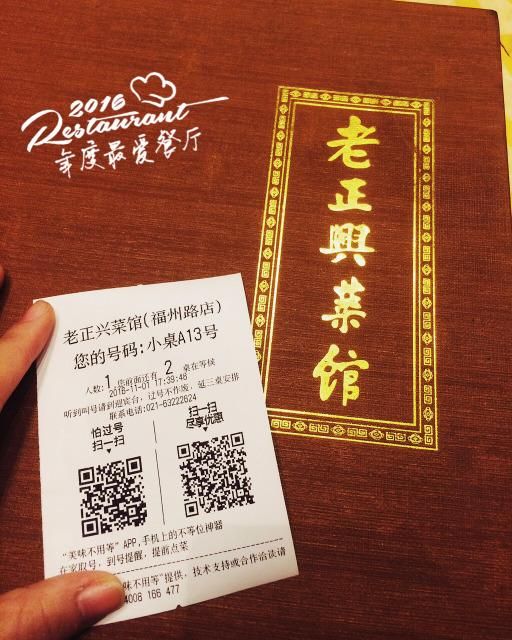 2016
Restaurant
年度最爱餐厅
老正興菜馆
老正兴菜馆(福州路店)
您的号码:小桌A13号
人数:1 您前面还有 2 桌在等候
2016-11-01 17:39:46
听到叫号请到迎宾台,过号不作废,延三桌安排
联系电话:021-63222624
怕过号
扫一扫
扫一扫
尽享优惠
"美味不用等"APP,手机上的不等位神器
在家取号,到号提醒,提前点菜
味不用等"提供,技术支持或合作洽谈请
4008 166 477